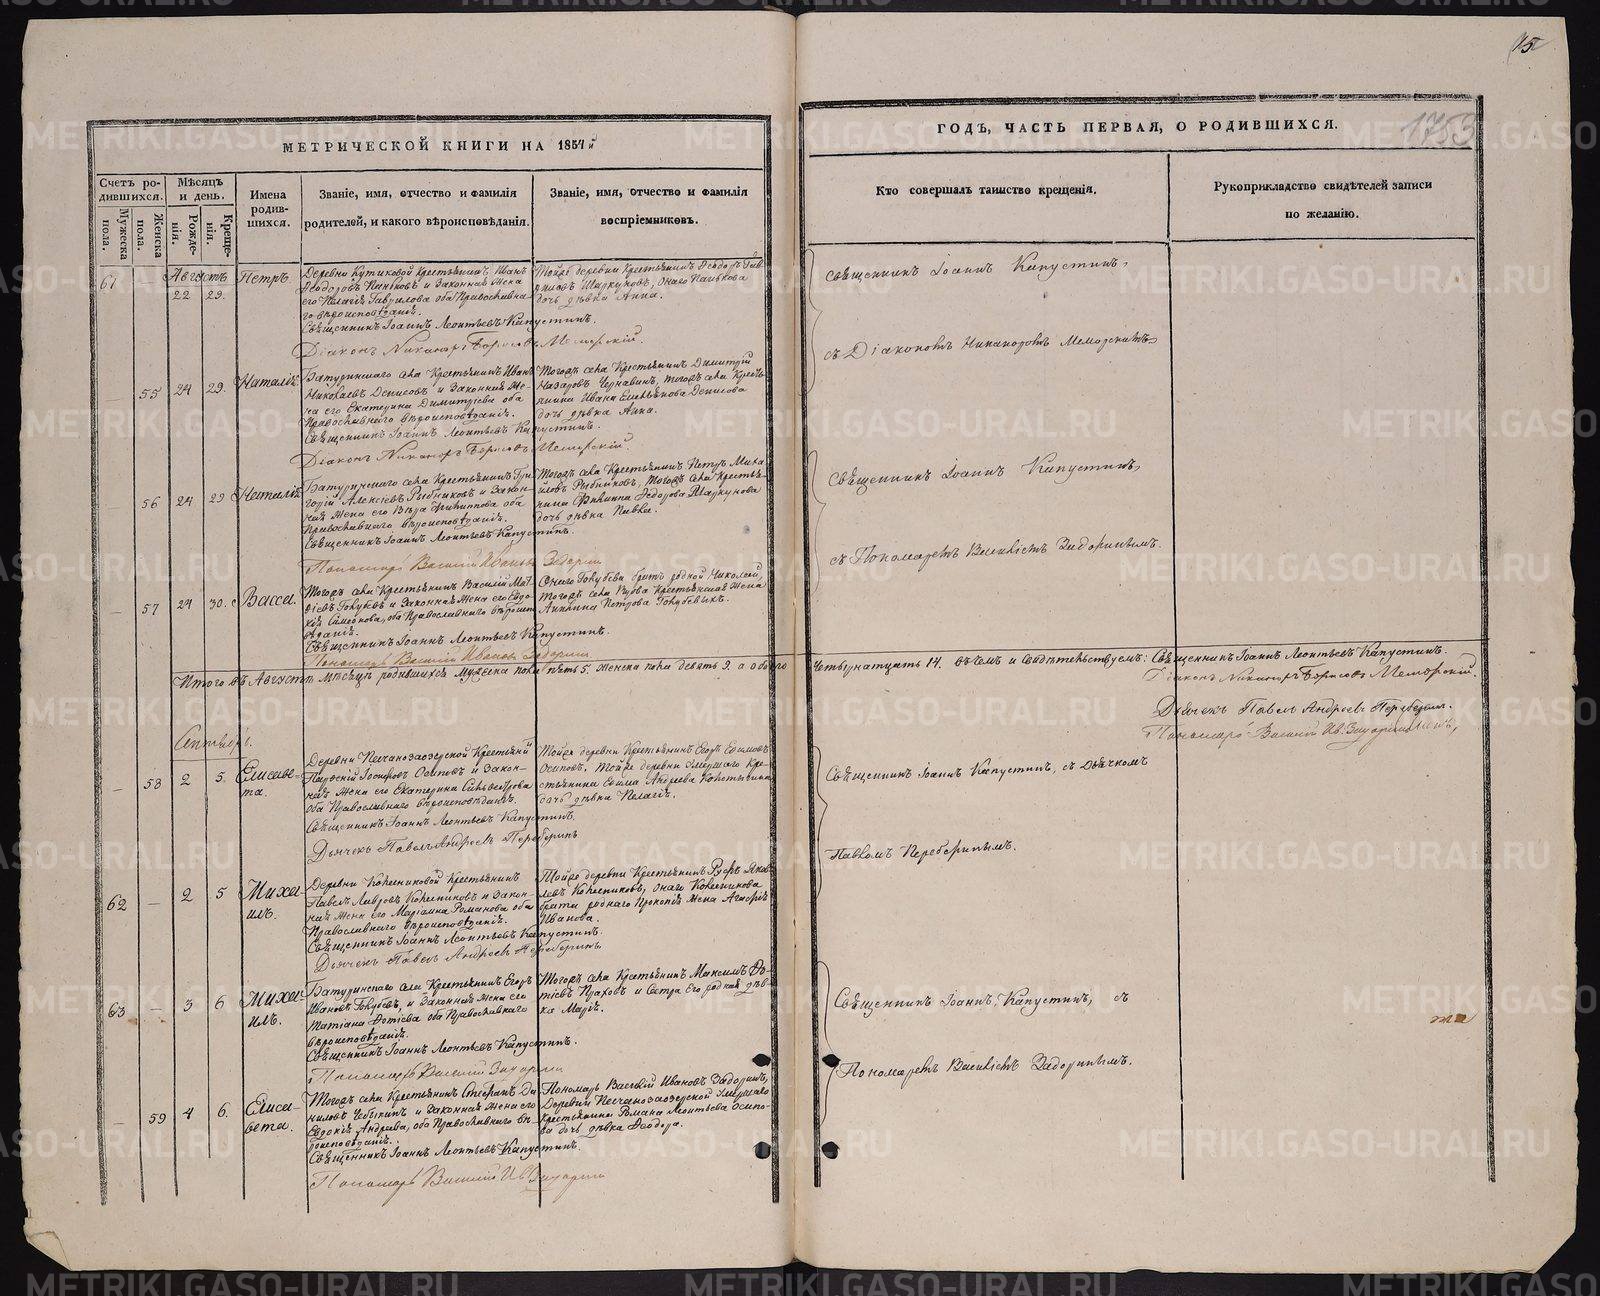 15
1753
МЕТРИЧЕСКОЙ КНИГИ НА 1857й
ГОДЪ, ЧАСТЬ ПЕРВАЯ, О РОДИВШИХСЯ.
Счетъ родившихся.
Мужеска пола.
Женска пола.
Мѣсяцъ и день.
Рожденія.
Крещенія.
Имена родившихся.
Званіе, имя, отчество и фамилія
родителей, и какого вѣроисповѣданія.
Званіе, имя, отчество и фамилія
воспріемниковъ.
Кто совершалъ таинство крещенія.
Рукоприкладство свидѣтелей записи
по желанію.
Августъ
61 22 29. Петръ
Деревни Кутиковой Крестьянинъ Иванъ
Ѳеодоровъ и Законная Жена
его Пелагія Гаврилова оба Православнаго
вѣроисповѣданія.
Священникъ Іоаннъ Леонтьевъ Капустинъ.
Діаконъ Никаноръ Борисовъ Меморскій.
Тойже деревни Крестьянинъ Ѳеодоръ
дочь дѣвка Анна.
Священникъ Іоаннъ Капустинъ,
съ Діакономъ Никаноромъ Меморскимъ
— 55 24 29. Наталія
Батуринскаго села Крестьянинъ Иванъ
Николаевъ Денисовъ и Законная Же-
на его Екатерина Димитріева оба
Православнаго вѣроисповѣданія.
Священникъ Іоаннъ Леонтьевъ Капустинъ.
Діаконъ Никаноръ Борисовъ Меморскій.
Тогожъ села Крестьянинъ Димитрій
Назаровъ Чернавинъ, тогожъ села Кресть-
янина Ивана Емельянова Денисова
дочь дѣвка Анна.
— 56 24 29 Наталія
Батуринскаго села Крестьянинъ Гри-
горій Алексѣевъ Рыбниковъ и Закон-
ная Жена его Вѣра Филиппова оба
Православнаго вѣроисповѣданія.
Священникъ Іоаннъ Леонтьевъ Капустинъ.
Пономарь Василій Ивановъ Задоринъ
Тогожъ села Крестьянинъ Петръ Миха-
йловъ Рыбниковъ, Тогожъ села Крестья-
нина Филиппа Ѳедорова
дочь дѣвка Павла.
Священникъ Іоаннъ Капустинъ,
съ Пономаремъ Василіемъ Задоринымъ.
— 57 24 30. Васса.
Тогожъ села Крестьянинъ Василій Мат-
вѣевъ Голубевъ и Законная Жена его Евдо-
кія Симеонова, оба Православнаго вѣроиспо-
вѣданія.
Священникъ Іоаннъ Леонтьевъ Капустинъ.
Пономарь Василій Ивановъ Задоринъ
Онаго Голубева братъ родной Николай,
тогожъ села Крестьянская Жена
Аннина Петрова Голубевыхъ.
Итого въ Августѣ мѣсяцѣ родившихся мужеска пола пять 5. женска пола девять 9. а обоего
четырнатцать 14. въ чемъ и свидѣтельствуемъ: Священникъ Іоаннъ Леонтьевъ Капустинъ.
Діаконъ Никаноръ Борисовъ Меморскій.
Дьячекъ Павелъ Андреевъ Переберинъ.
Пономарь Василій Ив. Задоринъ
Сентябрь.
— 58 2 5. Елисаве-
та.
Деревни Песчанозаозерской Крестьянинъ
Осиповъ и Закон-
ная Жена его Екатерина Сильвестрова
оба Православнаго вѣроисповѣданія.
Священникъ Іоаннъ Леонтьевъ Капустинъ.
Дьячекъ Павелъ Андреевъ Переберинъ
Тойже деревни Крестьянинъ Егоръ Ефимовъ
Осиповъ. Тойже деревни умершаго Кре-
стьянина Ефима Андреева
дочь дѣвка Пелагія.
Священникъ Іоаннъ Капустинъ, съ Дьячкомъ
Павломъ Переберинымъ.
62 — 2 5 Миха-
илъ.
Деревни Колесниковой Крестьянинъ
Павелъ Лавровъ Колесниковъ и Закон-
ная Жена его Маріамна Романова оба
Православнаго вѣроисповѣданія.
Священникъ Іоаннъ Леонтьевъ Капустинъ.
Дьячекъ Павелъ Андреевъ Переберинъ
Тойже деревни Крестьянинъ Руфъ Яков-
левъ Колесниковъ, онаго Колесникова
брата роднаго Прокопія жена Агафія
Иванова.
63 — 3 6 Миха-
илъ.
Батуринскаго села Крестьянинъ Егоръ
Ивановъ Голубевъ, и Законная Жена его
Татіана Фотіева оба Православнаго
вѣроисповѣданія.
Священникъ Іоаннъ Леонтьевъ Капустинъ.
Пономарь Василій Задоринъ
Тогожъ села Крестьянинъ Максимъ Фо-
тіевъ Праховъ и Сестра его родная дѣв-
ка Марія.
Священникъ Іоаннъ Капустинъ, съ
Пономаремъ Василіемъ Задоринымъ.
— 59 4 6. Елиса-
вета.
Тогожъ села Крестьянинъ Стефанъ Да-
ниловъ и Законная Жена его
Евдокія Андреева, оба Православнаго вѣ-
роисповѣданія.
Священникъ Іоаннъ Леонтьевъ Капустинъ.
Пономарь Василій Ив. Задоринъ
Пономарь Василій Ивановъ Задоринъ,
Деревни Песчанозаозерской умершаго
Крестьянина Романа Леонтьева Осипо-
ва дочь дѣвка Ѳеодора.
METRIKI.GASO-URAL.RU